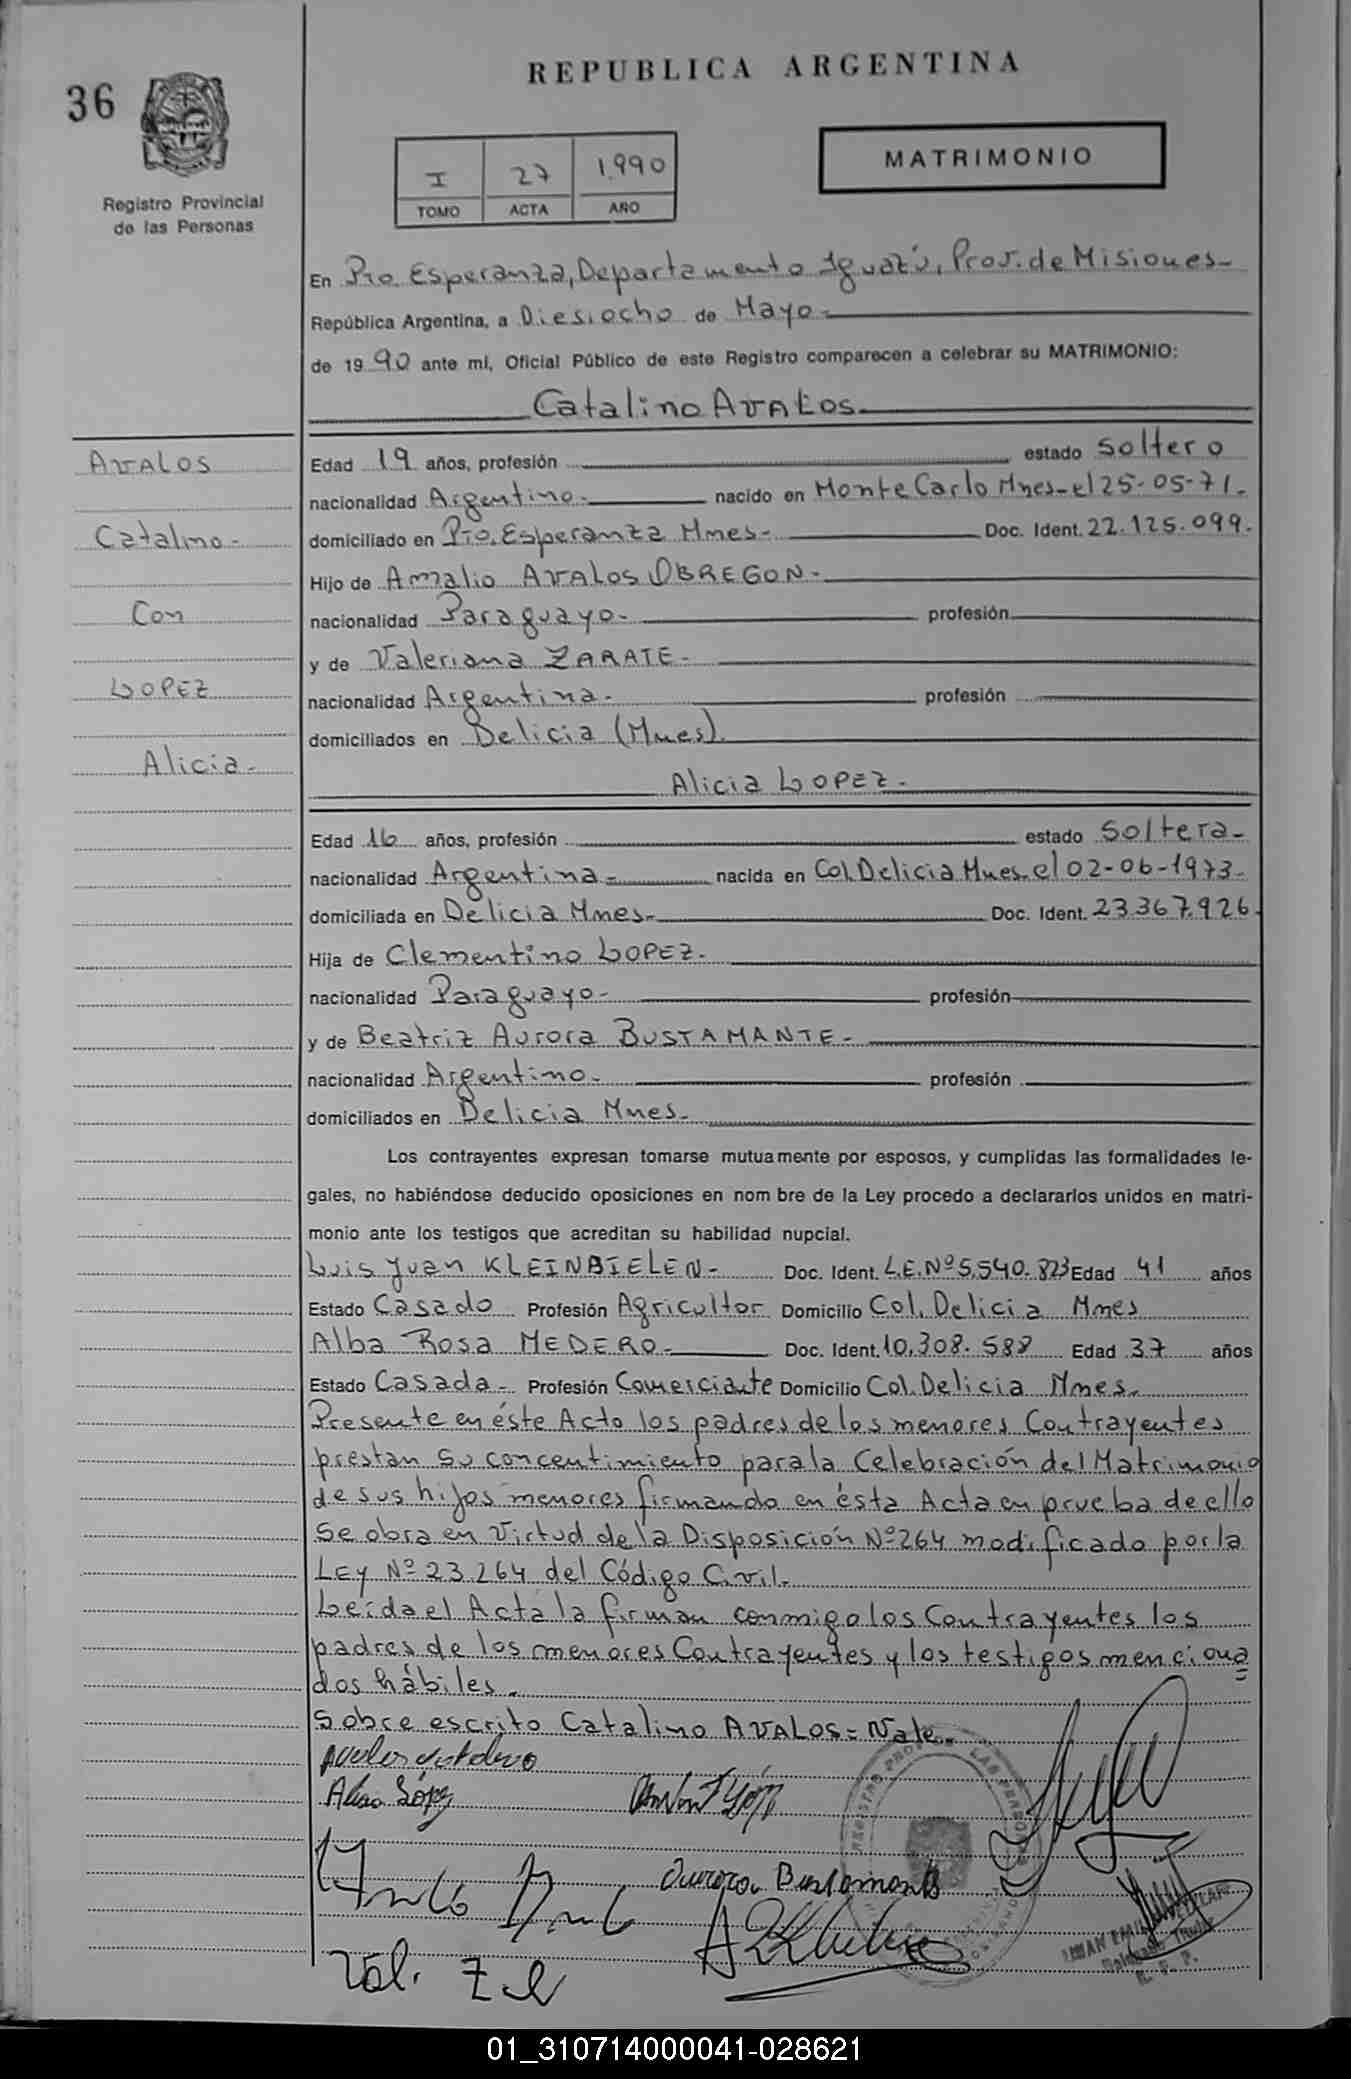 36
REPUBLICA ARGENTINA
I 27 1.990
TOMO ACTA AÑO
MATRIMONIO
Registro Provincial
de las Personas
En Pto. Esperanza, Departamento Iguazú, Prov. de Misiones-
República Argentina, a Diesiocho de Mayo-
de 1990 ante mí, Oficial Público de este Registro comparecen a celebrar su MATRIMONIO:
Catalino AVALOS
AVALOS
Catalino-
Con
LOPEZ
Alicia-
Edad 19 años, profesión estado Soltero
nacionalidad Argentino- nacido en Monte Carlo Mnes-el 25-05-71.
domiciliado en Pto. Esperanza Mnes- Doc. Ident. 22.125.099.
Hijo de Amalio AVALOS OBREGON-
nacionalidad Paraguayo- profesión
y de Valeriana ZARATE-
nacionalidad Argentina- profesión
domiciliados en Delicia (Mnes).
Alicia LOPEZ-
Edad 16 años, profesión estado Soltera-
nacionalidad Argentina- nacida en Col. Delicia Mnes. el 02-06-1973-
domiciliada en Delicia Mnes- Doc. Ident. 23.367.926.
Hija de Clementino LOPEZ-
nacionalidad Paraguayo- profesión
y de Beatriz Aurora BUSTAMANTE-
nacionalidad Argentino- profesión
domiciliados en Delicia Mnes-
Los contrayentes expresan tomarse mutuamente por esposos, y cumplidas las formalidades le-
gales, no habiéndose deducido oposiciones en nom bre de la Ley procedo a declararlos unidos en matri-
monio ante los testigos que acreditan su habilidad nupcial.
Luis Juan KLEINBIELEN- Doc. Ident. L.E.Nº5.540.823 Edad 41 años
Estado Casado Profesión Agricultor Domicilio Col. Delicia Mnes
Alba Rosa MEDERO- Doc. Ident. 10.308.588 Edad 37 años
Estado Casada- Profesión Comerciante Domicilio Col. Delicia Mnes-
Presente en éste Acto los padres de los menores Contrayentes
prestan su concentimiento para la Celebración del Matrimonio
de sus hijos menores firmando en ésta Acta en prueba de ello
Se obra en Virtud de la Disposición Nº264 modificado por la
LEY Nº 23.264 del Código Civil-
Leída el Acta la firman conmigo los Contrayentes los
padres de los menores Contrayentes y los testigos menciona
dos hábiles.
Sobre escrito Catalino AVALOS = Vale-
Alicia López
Aurora Bustamante
01_310714000041-028621